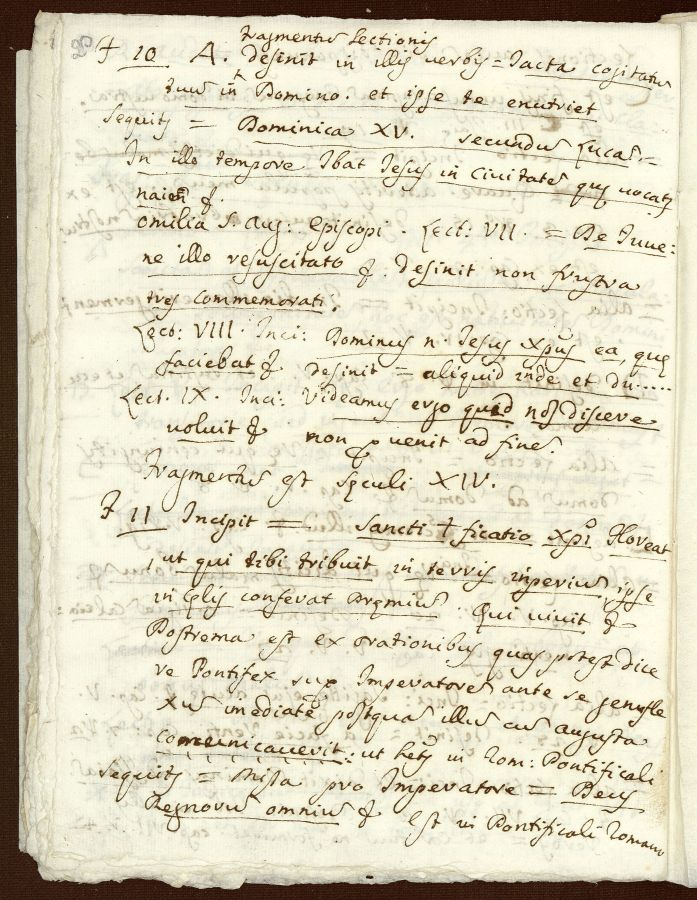 fragmentum Lectionis
F 10 A. desinit in illis verbis = Iacta cogitatum
tuum in Domino. et ipse te enutriet
Sequitur = Dominica XV. secundum Lucam =
In illo tempore Ibat Iesus in ciuitatem que uocatur
naim &.
omilia S. Aug: Episcopi. Lect: VII. = De Iuue:
ne illo resuscitato &. desinit non frustra
tres commemorati.
Lect: VIII. Inci: Dominus n. Iesus xpus ea, que
faciebat & desinit = aliquid inde et du.....
Lect. IX. Inci: Videamus ergo quid nos discere
voluit & non puenit ad finem.
Fragmentum est seculi XIV.
F 11 Incipit = Sancti + ficatio xpi floreat
ut qui tibi tribuit in terris inperium, ipse
in celis conferat premium. Qui uiuit &
Postrema est ex orationibus quas potest dice
re Pontifex sup Imperatorem ante se genufle
xum imediate postquam illum cum augusta
comunicauerit: ut hetur in Rom: Pontificali
Sequitur = Missa pro Imperatore = Deus
Regnorum omnium & est in Pontificali Romano